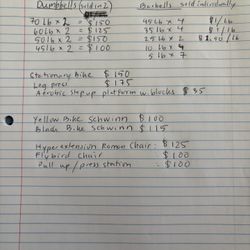 Dumpbells (sold in 2)
Barbells sold individually
70 lb x 2 = $150
45 lb x 4 $1/lb
60 lb x 2 = $125
35 lb x 4
50 lb x 2 = $150
25 lb x 2
45 lb x 2 = $100
10 lb x 4
5 lb x 7
Stationary Bike $150
Leg press $175
Aerobic Step up platform w. blocks $35
Yellow Bike Schwinn $100
Blade Bike Schwinn $115
Hyperextension Roman Chair: $125
Flybird Chair : $100
Pull up / press station : $100